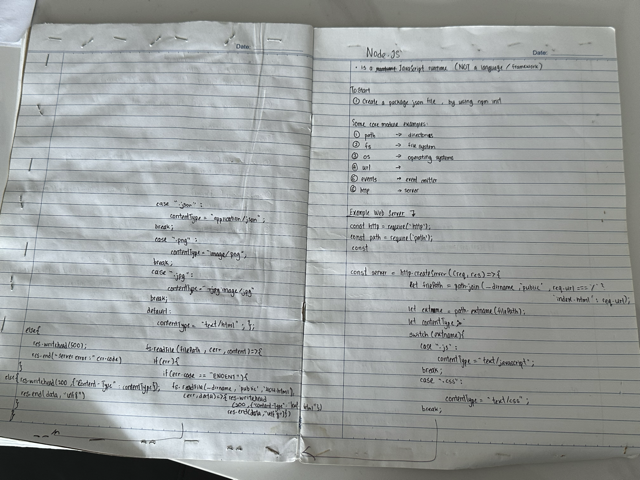 Date:
case ".json" :
contentType = "application/json";
break;
case ".png" :
contentType = "image/png";
break;
case ".jpg" :
contentType = "image/jpg"
break;
default:
contentType = "text/html" ; };
fs.readFile(filePath, (err, content) => {
if (err){
if (err.code == "ENOENT"){
fs.readFile(__dirname, 'public', '404.html'),
(err, data) => { res.writeHead
(200, {"Content-Type": "text/html"})
res.end(data, "utf8") })
else{
res.writeHead(500);
res.end("server error:" err.code)
}
else{ res.writeHead(200, {"Content-Type" : contentType});
res.end(data, "utf8")
}
}
Node.JS
Date:
• is a JavaScript runtime (NOT a language / framework)
To Start
① Create a package.json file , by using npm init
Some core module examples:
① path → directories
② fs → file system
③ os → operating systems
④ url →
⑤ events → emitter
⑥ http → server
Example Web Server ↴
const http = require('http');
const path = require('path');
const
const server = http.createServer((req, res) => {
let filePath = path.join(__dirname, 'public' , req.url === '/' ?
'index.html' : req.url);
let extname = path.extname(filePath);
let contentType
switch (extname){
case ".js":
contentType = "text/javascript";
break;
case ".css":
contentType = "text/css" ;
break;